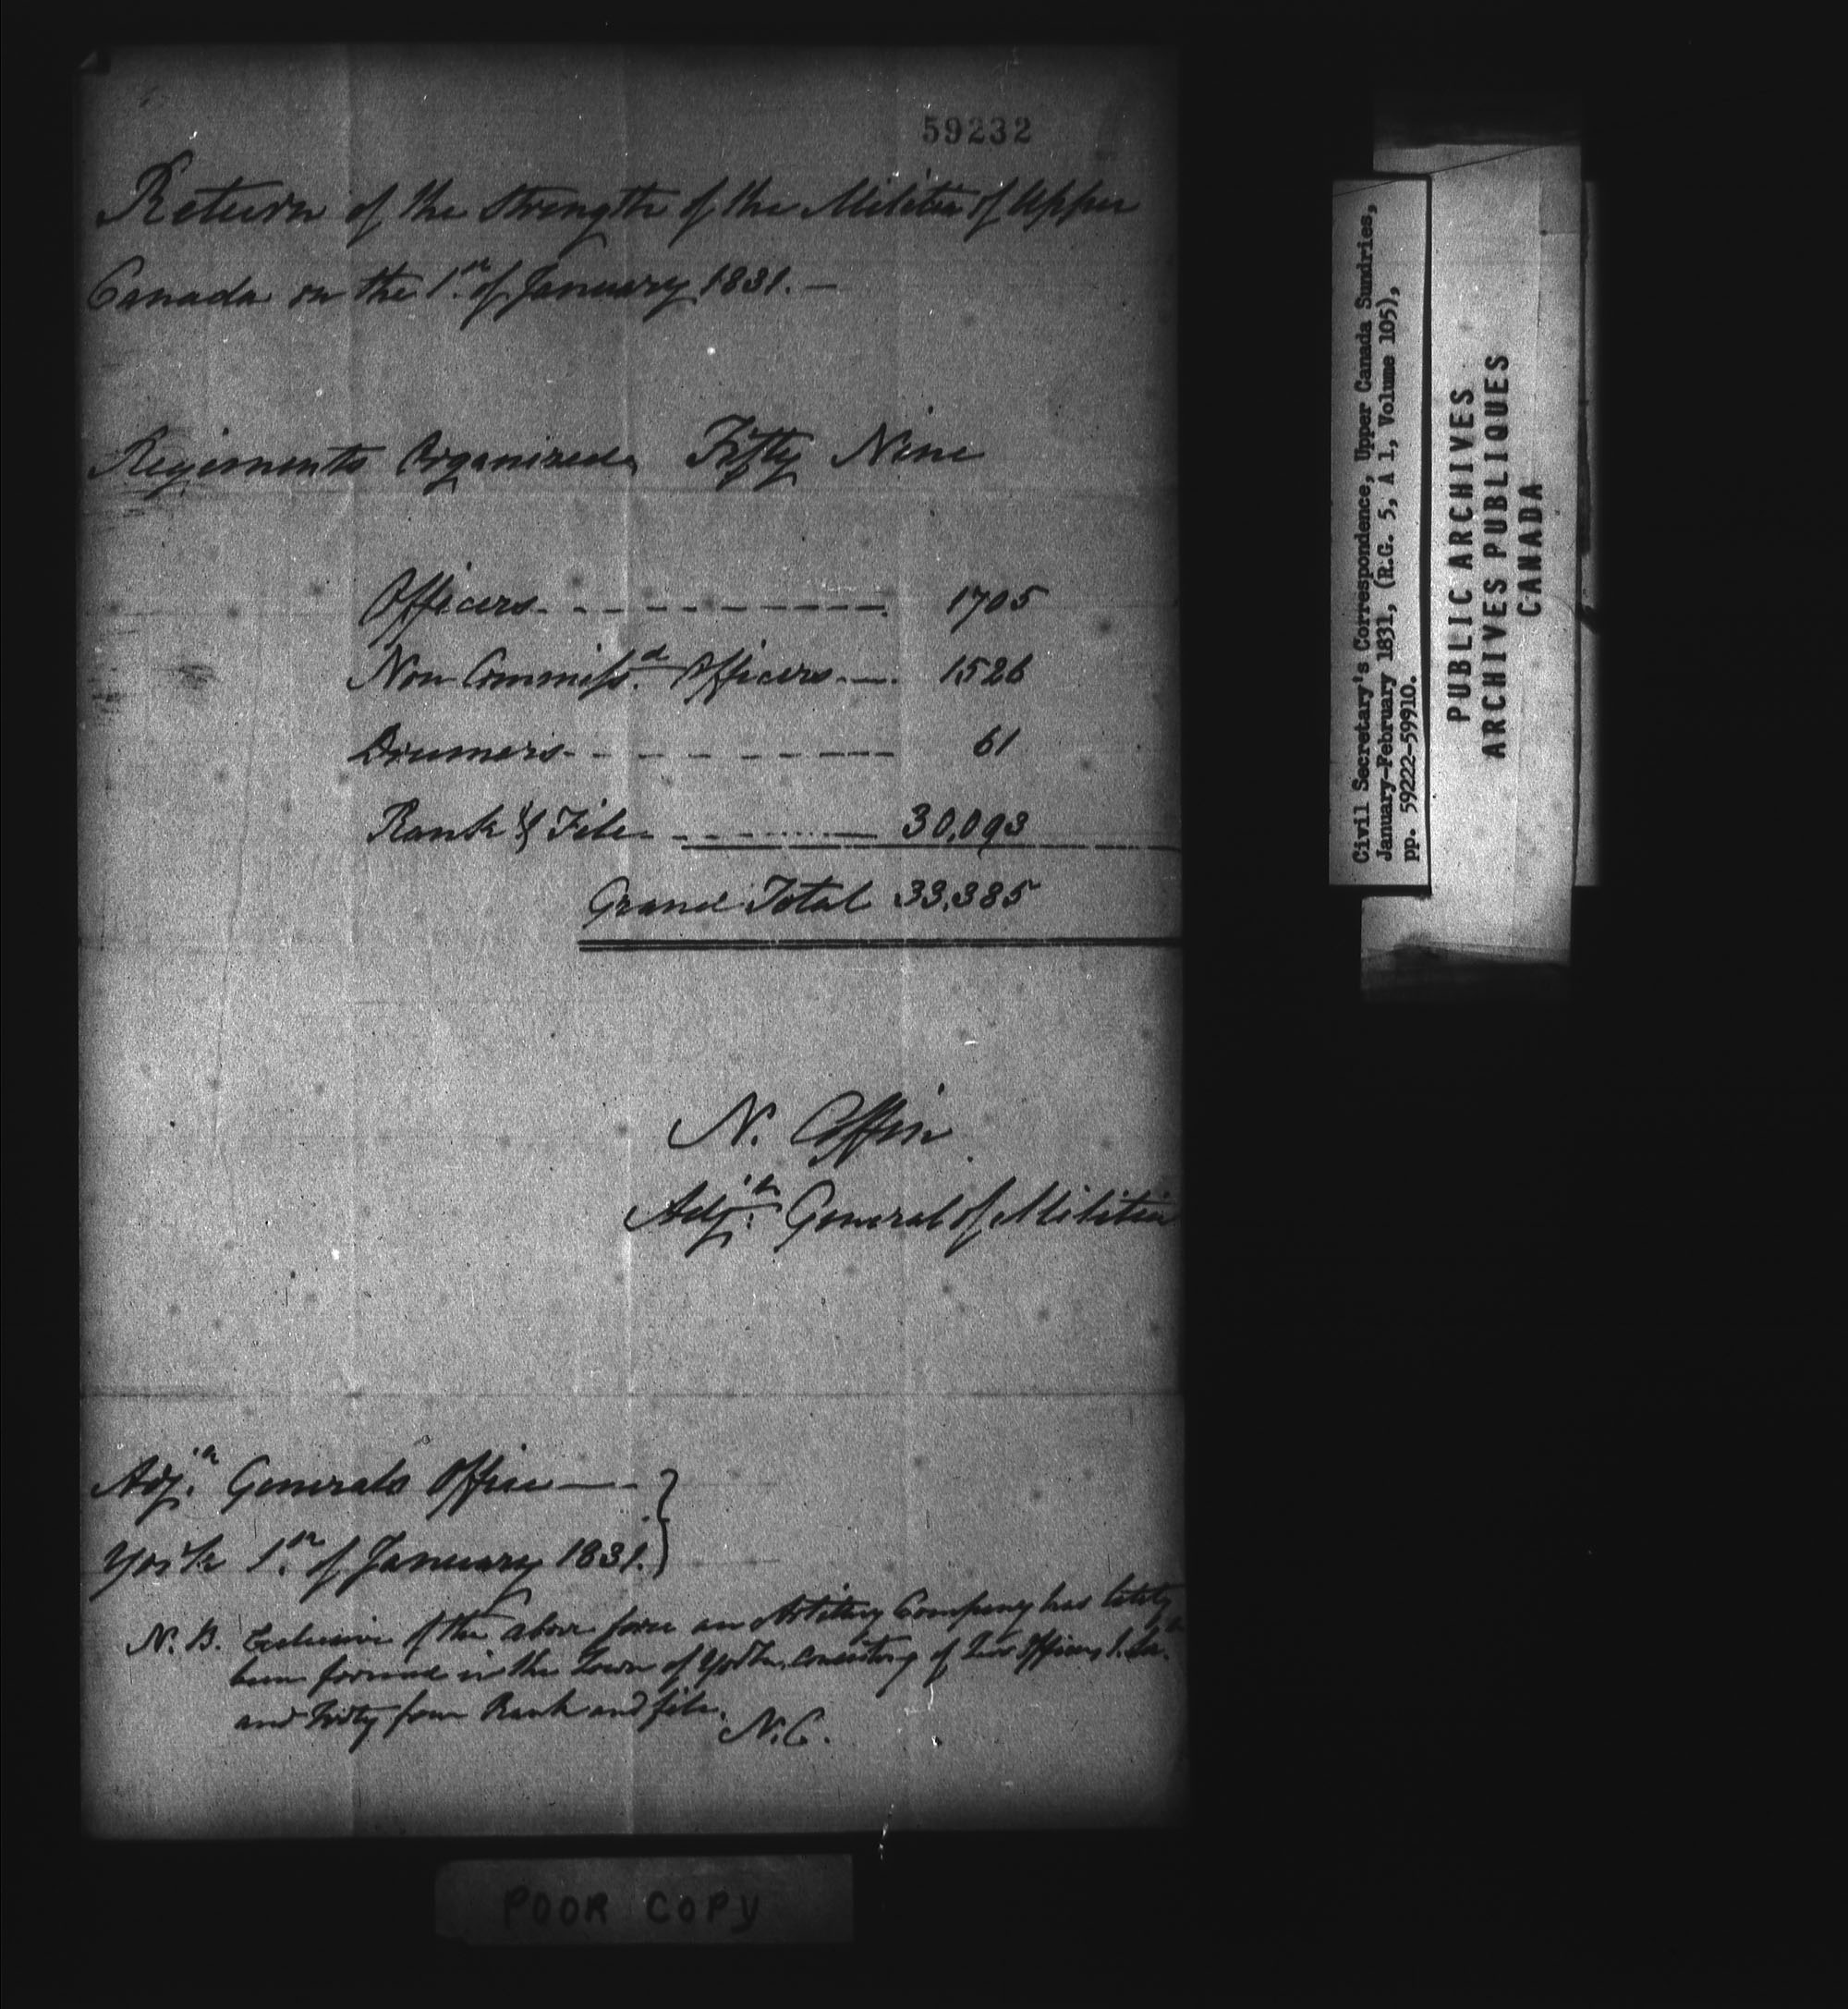 59232
Return of the Strength of the Militia of Upper
Canada on the 1st of January 1831. —
Regiments Organized Fifty Nine
Officers 1705
Non Commissd. Officers 1526
Drumers 61
Rank & File 30,093
Grand Total 33,385
N. Coffin
Adjt. General of Militia
Adjt. Generals Office
York 1st of January 1831.
N.B. Exclusive of the above force an Artillery Company has lately
been formed in the Town of York, consisting of Two Officers 1
and Forty four Rank and file.
N.C.
Civil Secretary's Correspondence, Upper Canada Sundries,
January-February 1831, (R.G. 5, A 1, Volume 105),
pp. 59222-59910.
PUBLIC ARCHIVES
ARCHIVES PUBLIQUES
CANADA
POOR COPY